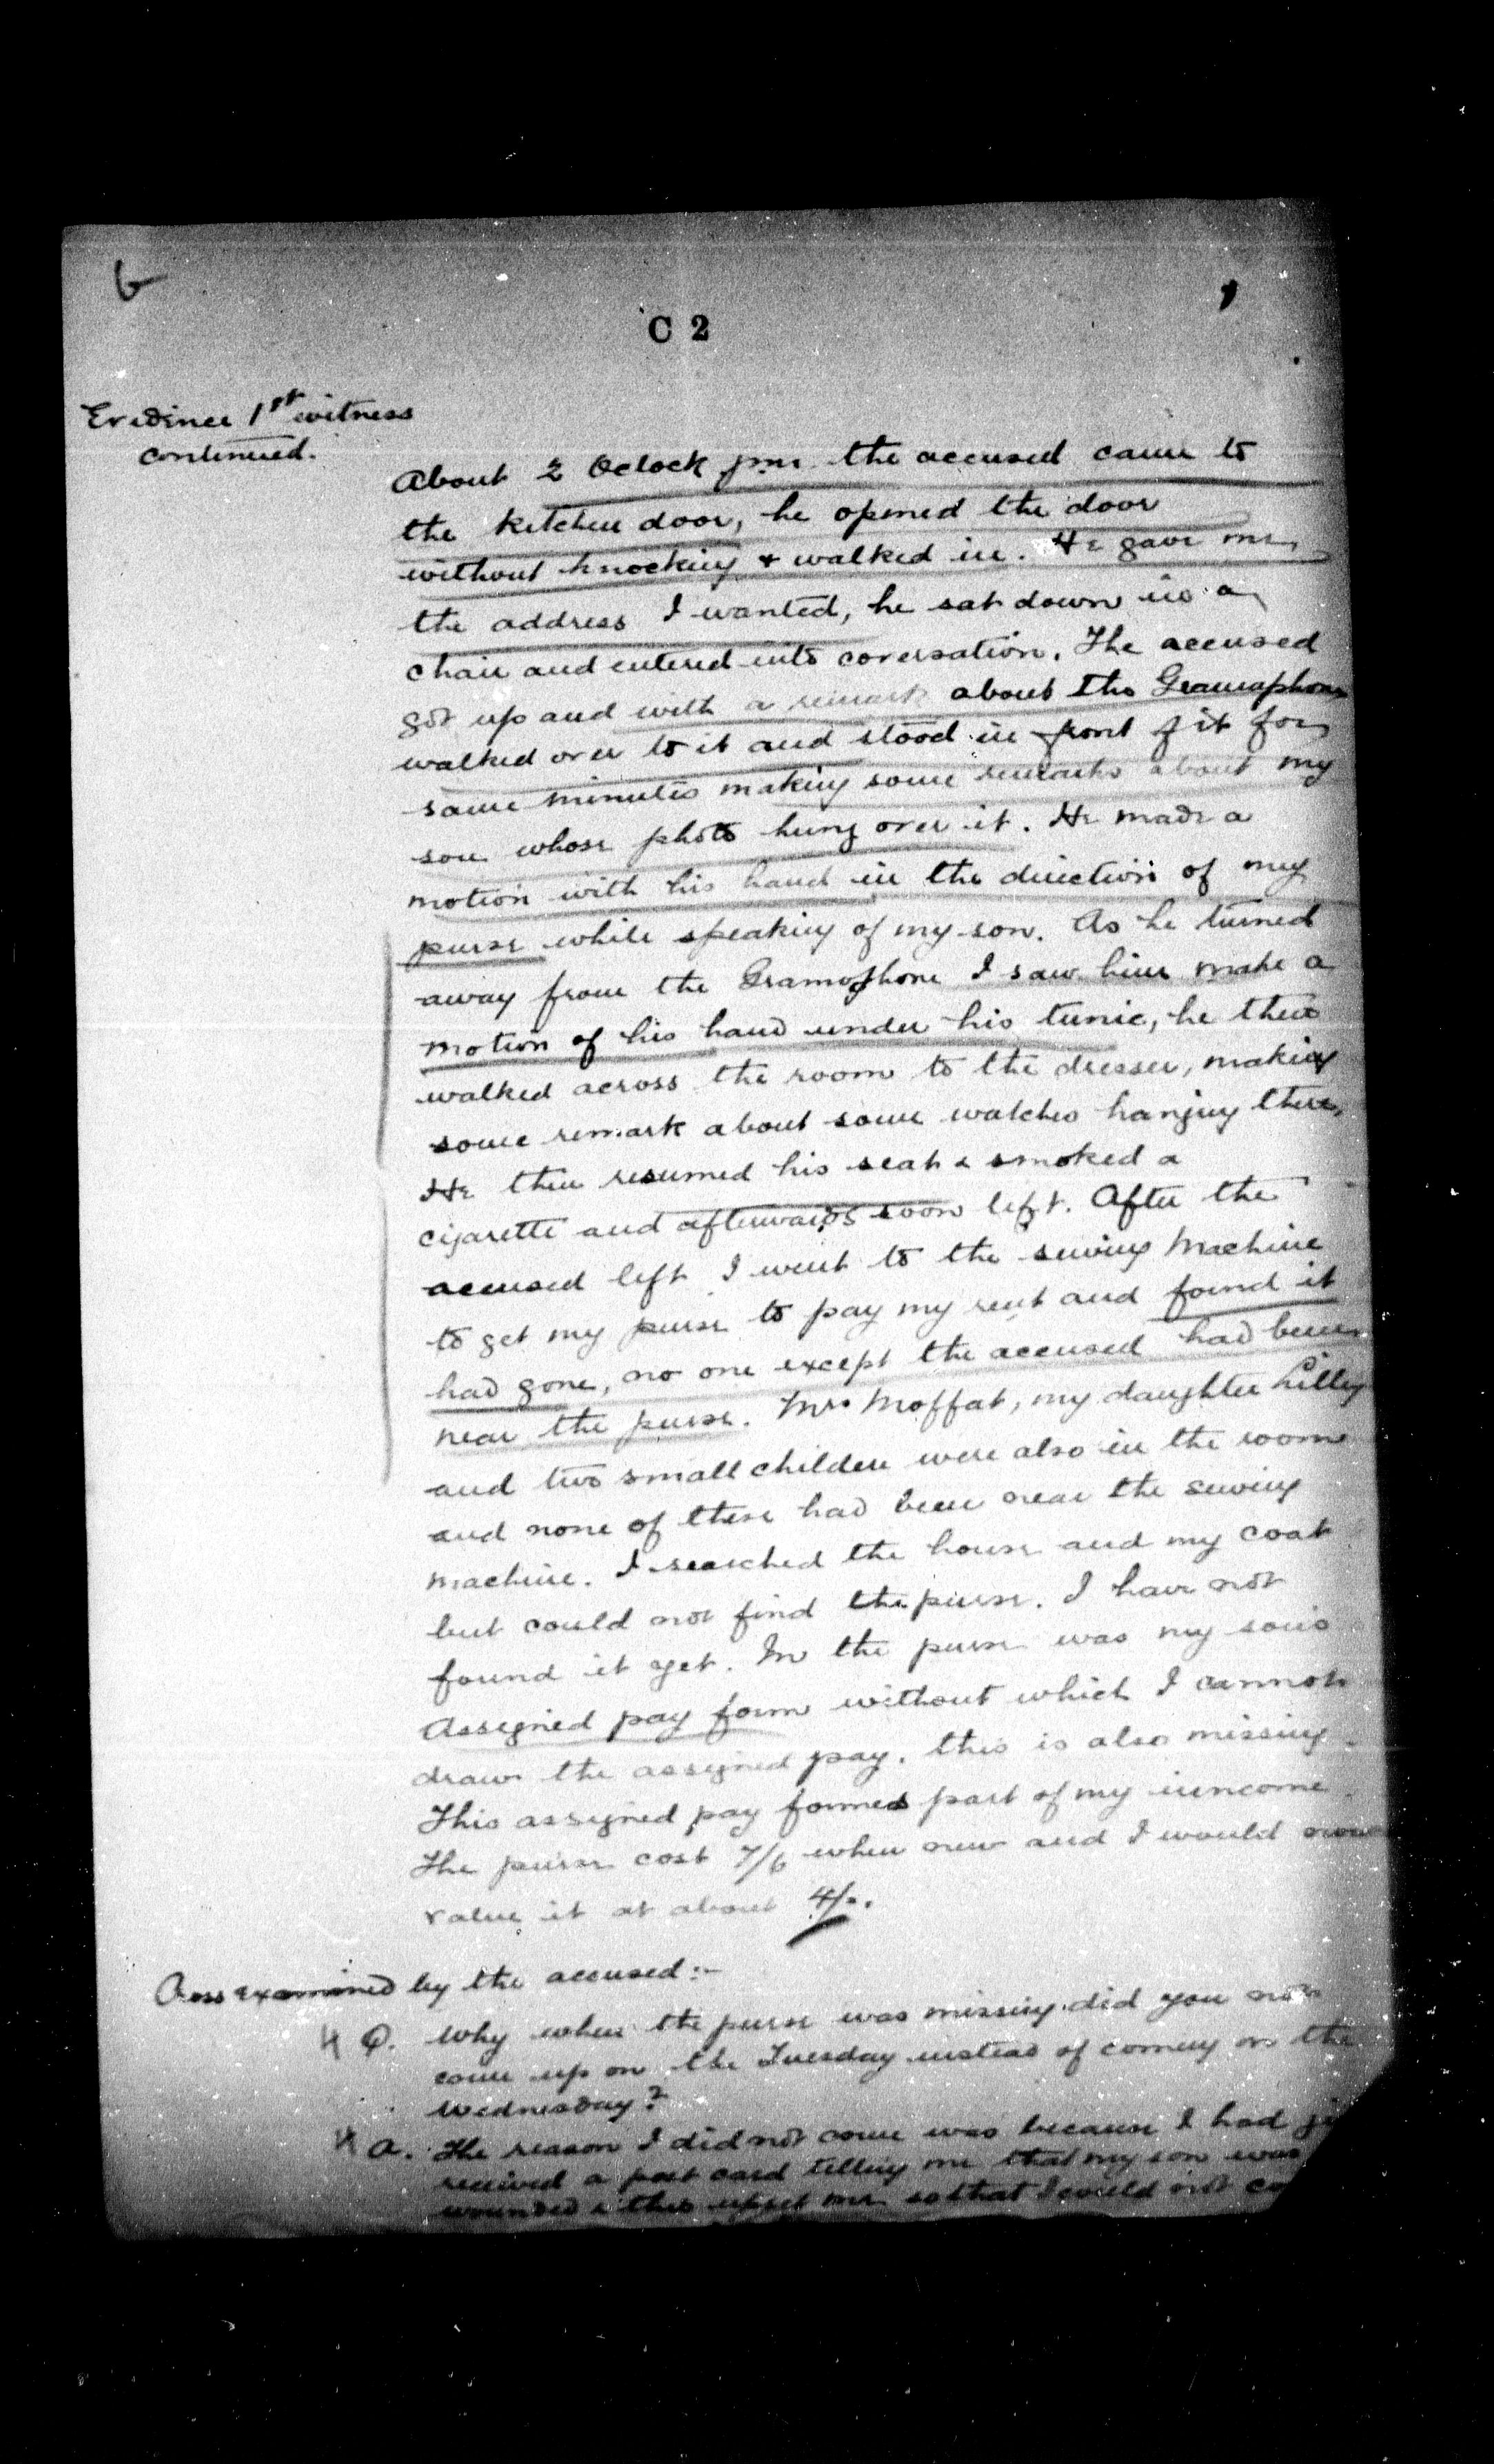 6
C 2
Evidence 1st witness
continued.
About 2 Oclock pm the accused came to
the kitchen door, he opened the door
without knocking & walked in. He gave me
the address I wanted, he sat down in a
chair and entered into coversation. The accused
got up and with a remark about the Gramaphone
walked over to it and stood in front of it for
some minutes making some remarks about my
son whose photo hung over it. He made a
motion with his hand in the direction of my
purse while speaking of my son. As he turned
away from the Gramophone I saw him make a
motion of his hand under his tunic, he then
walked across the room to the dresser, making
some remark about some watches hanging there,
He then resumed his seat & smoked a
cigarette and afterwards soon left. After the
accused left I went to the sewing machine
to get my purse to pay my rent and found it
had gone, no one except the accused had been
near the purse. Mrs Moffat, my daughter Lilley
and two small childern were also in the room
and none of these had been near the sewing
machine. I searched the house and my coat
but could not find the purse. I have not
found it yet. In the purse was my son's
Assigned pay form without which I cannot
draw the assigned pay. this is also missing.
This assigned pay formed part of my iuncome.
The purse cost 7/6 when new and I would now
value it at about 4/-.
Cross examined by the accused:-
4 Q. Why when the purse was missing did you not
come up on the Tuesday instead of coming on the
Wednesday?
4 A. The reason I did not come was because I had
received a post card telling me that my son was
wounded & this upset me so that I could not